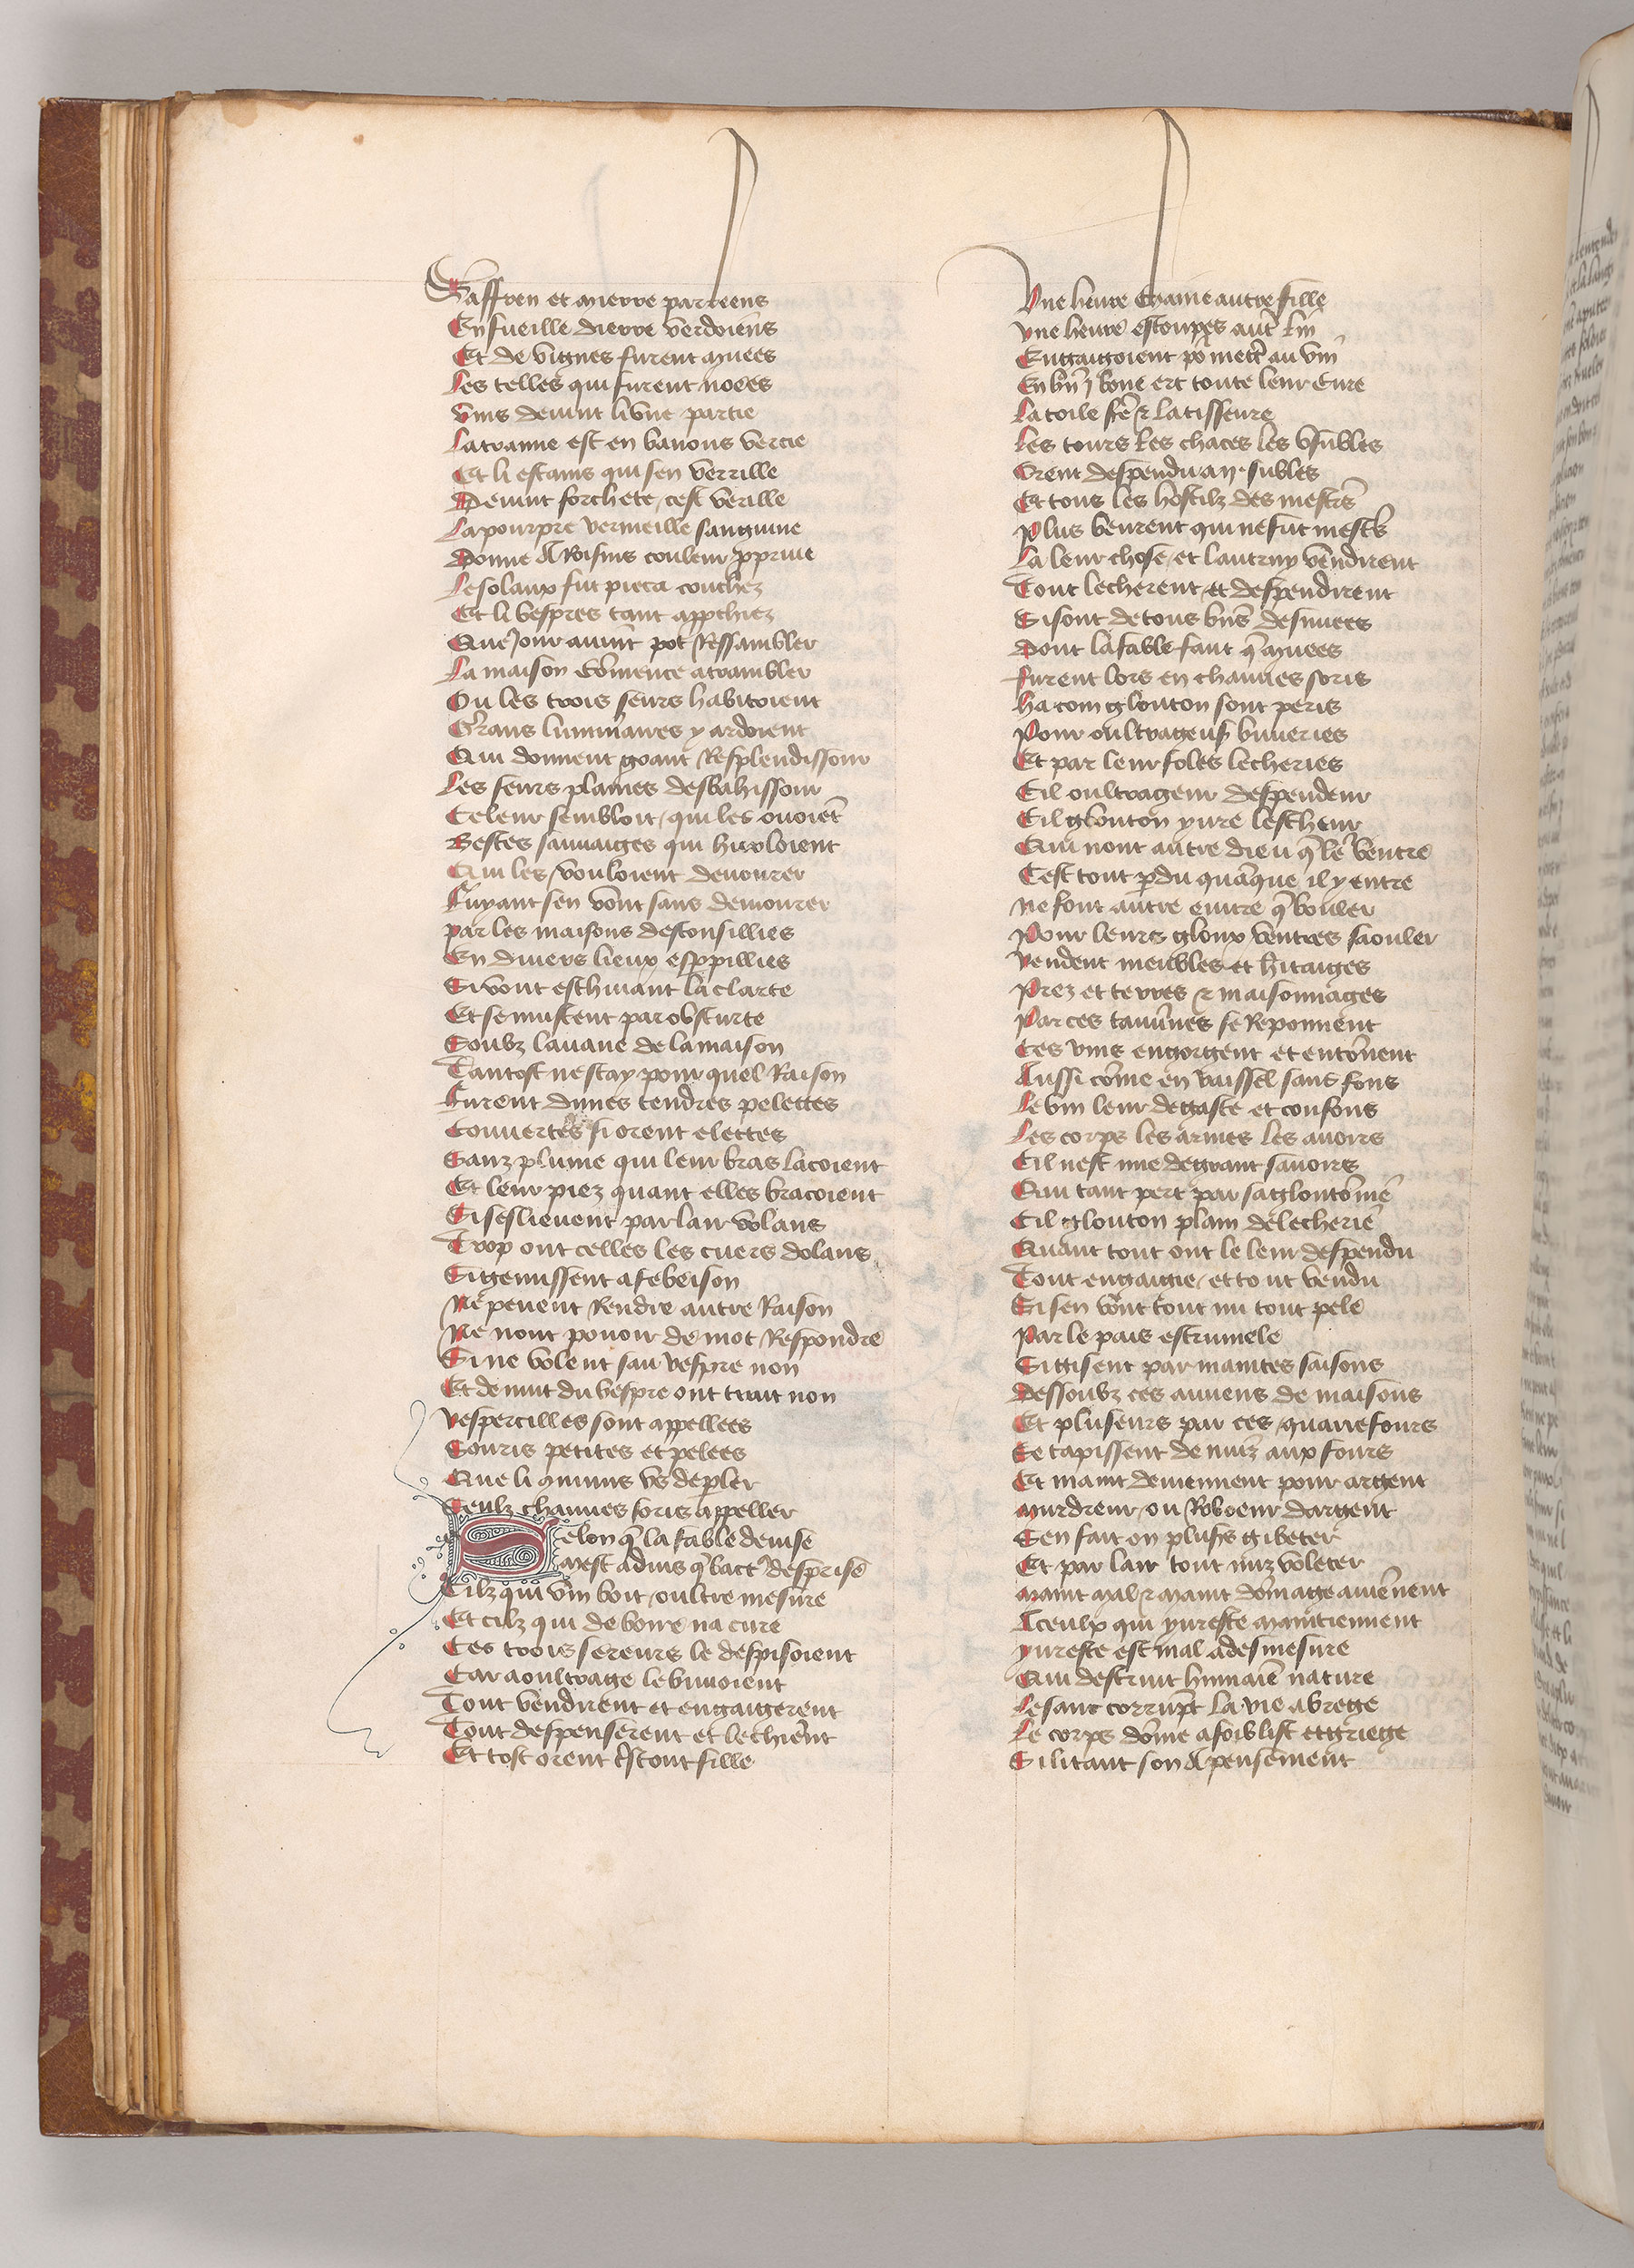 Saffren et mierre parteens
En fueille dierre verdoiens
Et de vignes furent muees
Les telles qui furent noees
Vins devint li une partie
La traime est en banons vertie
Et li estains qui sen verrille
Devint forchete cest verille
La pourpre vermeille sanguine
Donne a Roisins couleur pprine
Le solaux fut pieca couchez
Et li vespres tant appchiez
Que jour avint pot Ressambler
La maison comence a trambler
Ou les trois seurs habitoient
Grans luminaires y ardoient
Qui donnent grant Resplendissour
Les seurs plaines desbahissour
Ce leur sembloit qui les ouoiet
Bestes sauvaiges qui hurloient
Qui les vouloient devourer
Fuyant sen vont sans demourer
Par les maisons desconsillies
En divers lieux esppillies
Si vont eschivant la clarte
Et se muscent par obscurte
Soubz lavane de la maison
Tantost ne scay pour quel Raison
Furent dunes tendres pelettes
Couvertes si orent elettes
Sanz plume qui leur bras lacoient
Et leur piez quant elles bracoient
Si seslievent par lair volans
Trop ont celles les cuers dolans
Si gemissent a febeison
Ne pevent Rendre autre Raison
Ne nont povoir de mot Respondre
Si ne volent sau vespre non
Et de nuit du vespre ont trait non
Vespertilles sont appellees
Souris petites et pelees
Que li communs us de pler
Seulz chauves soris appeller
Selon q la fable devise
Mest advis q bact desprise
Cilz qui vin boit oultre mesure
Et cilz qui de boire na cure
Ces trois sereurs le despisoient
Car a oultrage le buvoient
Tout vendirent et engaigerent
Tout despenserent et lechieret
Et tost orent tistout fille
Une heure traime autre fille
Une heure estoupes aut lin
Engaigoient po mect au vin
En bn boire ert toute leur cure
La toile fe & la tisseure
Les tours les chaces les vsubles
Orent despendu an subles
Et tous les hostilz des mestrs
Plus beurent qui ne fut mestrs
La leur chose et lautruy vendirent
Tout lecherent et despendirent
Si sont de tous bns desnuees
Dont la fable faut q muees
Furent lors en chauves soris
Ha com glouton sont peris
Pour oultrageus buveries
Et par leur foles lecheries
Cil oultrageur despendeur
Cil glouton yure lescheur
Qui nont autre dieu q le ventre
Cest tout pdu quaque il y entre
Ne font autre euvre q bouler
Pour leurs gloux ventres saouler
Vendent meubles et hitaiges
Prez et terres & maisonnages
Par ces tavernes se Reponnent
Ces vins engorgent et entonent
Aussi come en vaissel sans fons
Le vin leur degaste et confons
Les corps les armes les avoirs
Cil nest mie de grant savoirs
Qui tant pert par sa gloutonie
Cil glouton plain de lecherie
Quant tout ont le leur despendu
Tout engaigie et tout vendu
Si sen vont tout nu tout pele
Par le pais estrumele
Si gisent par maintes saisons
Dessoubz ces auvens de maisons
Et pluseurs par ces quarrefours
Se tapissent de nuiz aux fours
Et maint deviennent pour argent
Murdreur ou Robeur dargent
Sen fait on plusrs gibeter
Et par lair tout nuz voleter
Maint mal & maint domage avienent
A ceulx qui yureste maintiennent
Yureste est mal a desmesure
Qui destruit humaie nature
Le sanc corrupt la vie abrege
Le corps dome afoiblist et griege
Si li taut son apensement